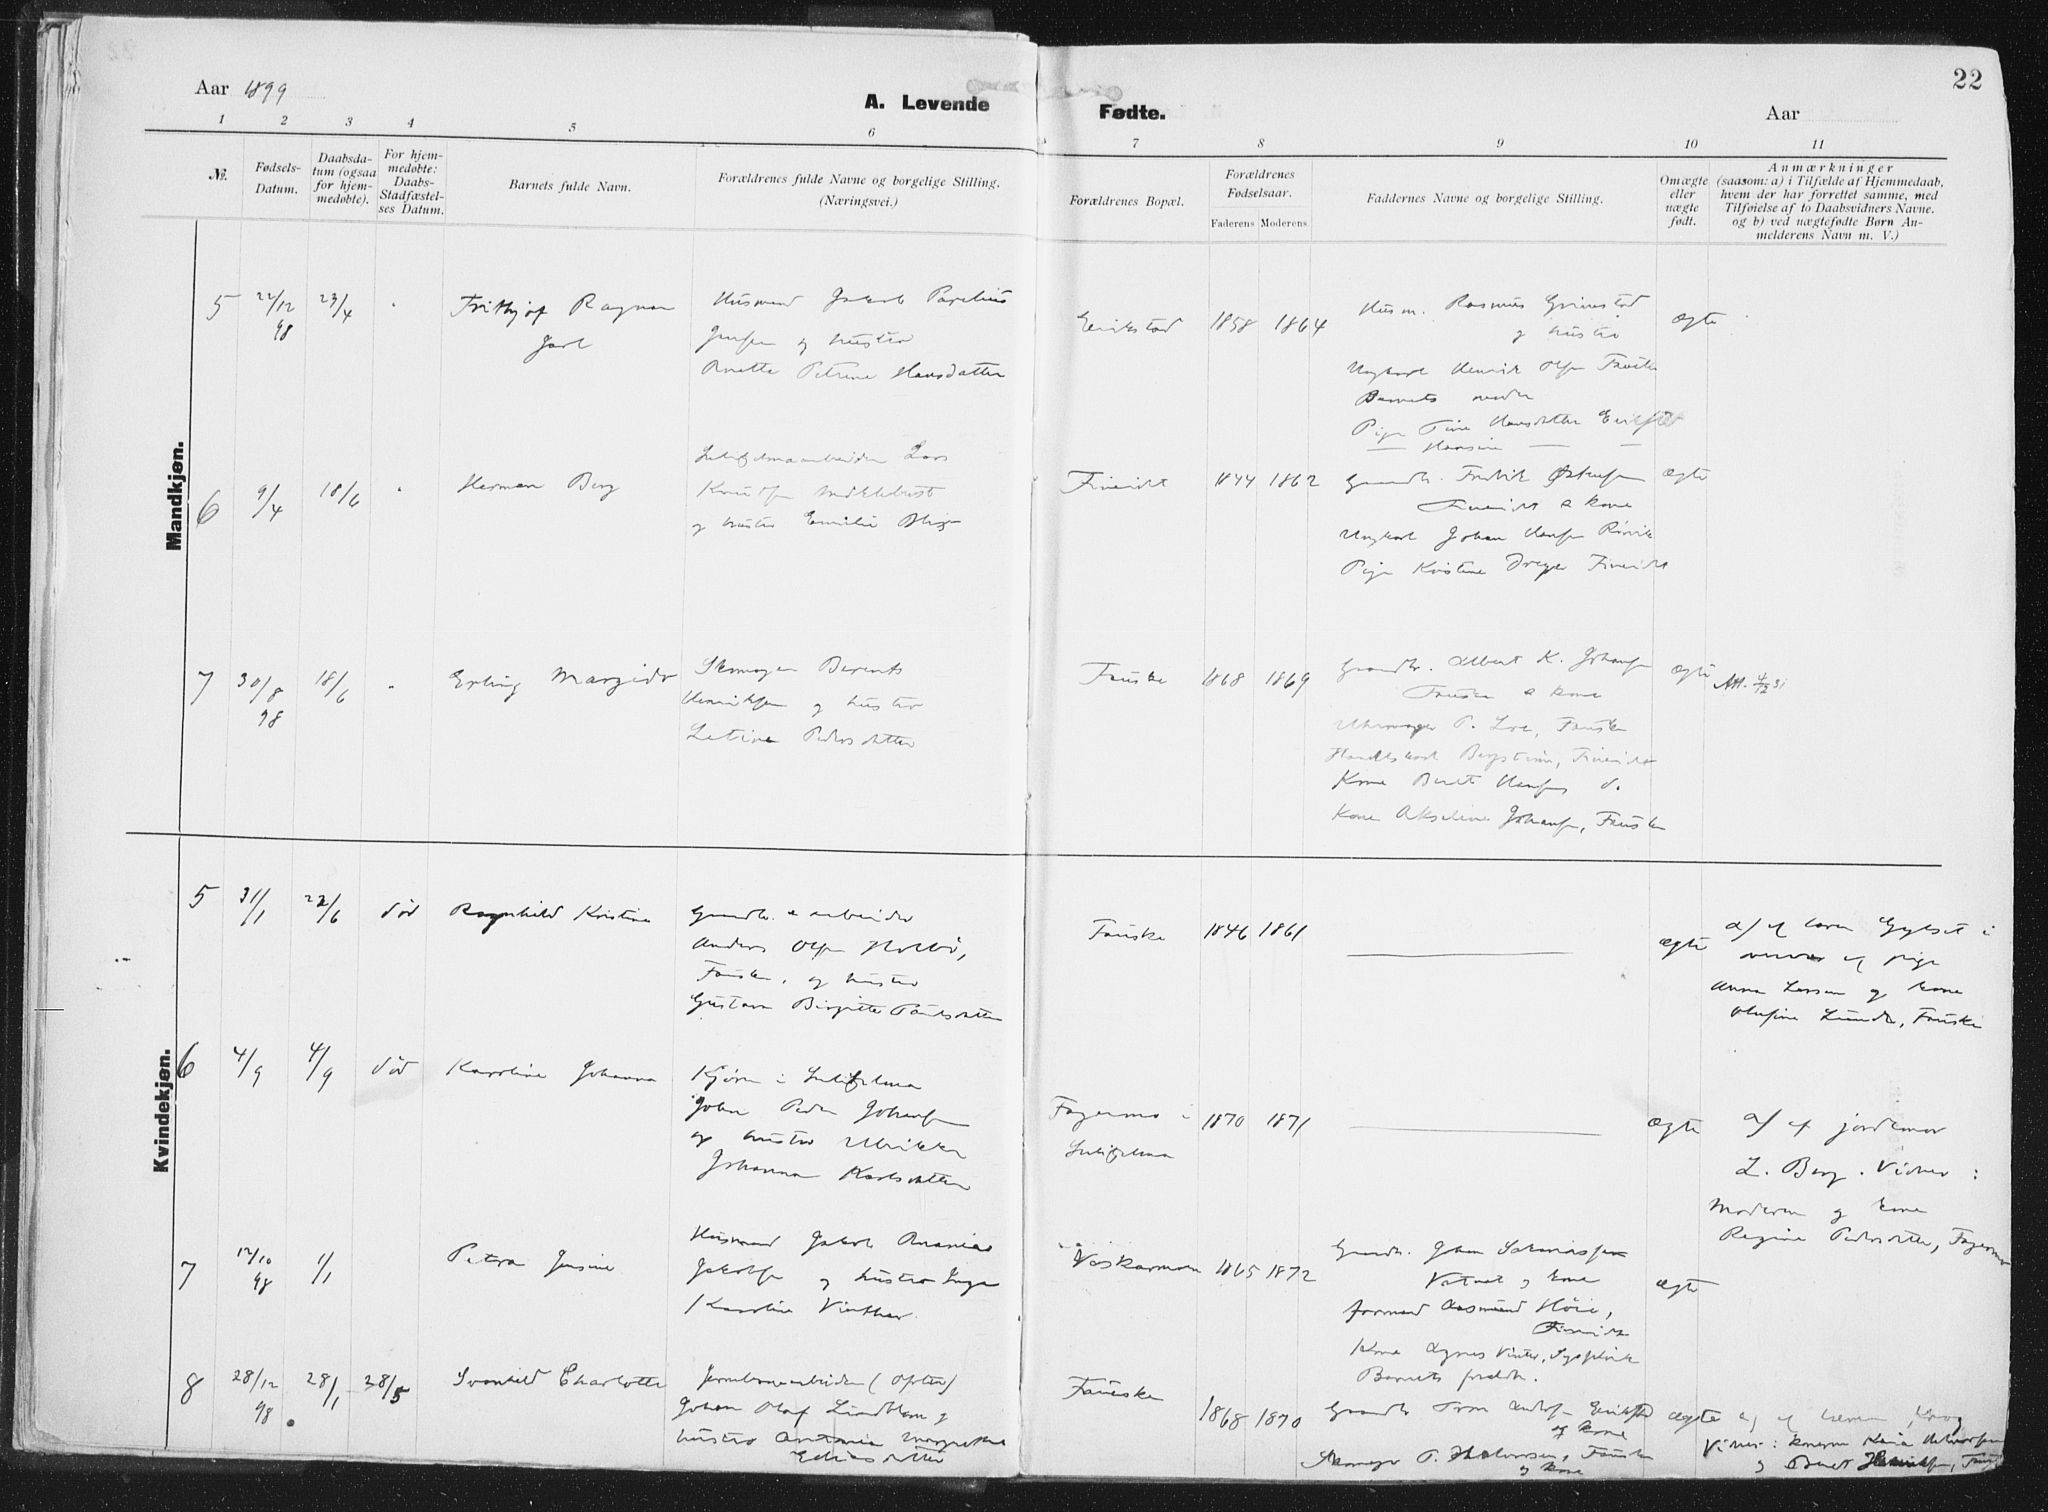 Aar 1899
A. Levende
Fødte.
Aar
22
1 2 3 4 5 6 7 8 9 10 11
№.
Fødsels-
Datum.
Daabsda-
tum (ogsaa
for hjem-
medøbte).
For hjem-
medøbte:
Daabs-
Stadfæstel-
ses Datum.
Barnets fulde Navn.
Forældrenes fulde Navne og borgelige Stilling.
(Næringsvei.)
Forældrenes Bopæl.
Forældrenes
Fødselsaar.
Faderens Moderens
Faddernes Navne og borgelige Stilling.
Om ægte
eller
uægte
født.
Anmærkninger
(saasom: a) i Tilfælde af Hjemmedaab,
hvem der har forrettet samme, med
Tilføielse af to Daabsvidners Navne.
og b) ved uægtefødte Børn An-
melderens Navn m. V.)
Mandkjøn.
5 22/12 98 23/4
Frithjof Ragnar
Jarl
Husmand Jakob Parelius
Jensen og hustru
Anette Petrine Hansdatter
Erikstad 1858 1864
Husm. Rasmus Grimstad
og hustru
Ungkarl Henrik Olsen Fauske
Barnets moder
Pige Tine Hansdatter Erikstad
— Hansine — —
ægte
6 9/4 18/6
Herman Berg
Sulitelmaarbeider Lars
Knudsen Mklebust
og hustru Emilie
Fineidet 1844 1862
Gaardbr. Fredrik
Fineidet & kone
Ungkarl Johan Hansen Røvik
Pige Kristine Dreyer Fineidet
ægte
7 30/8 98 18/6
Erling Margido
Skomager Berent
Henriksen og hustru
Letine Pedersdatter
Fauske 1868 1869
Gaardbr. Albert K. Johansen
Fauske & kone
Uhrmager P. Loe, Fauske
Bergstrøm, Fineidet
Kone Berit Hansen do.
Kone Akseline Johansen, Fauske
ægte
Att. 4/12 31
Kvindekjøn.
5 31/1 22/6 død
Ragnhild Kristine
Gaardbr. & arbeider
Anders Olsen Holtbø,
Fauske, og hustru
Gustava Birgitte Paulsdatter
Fauske 1846 1861
ægte
a) af lærer i
af pige
Anna Larsen og kone
Olufine Lund, Fauske
6 4/9 4/9 død
Karoline Johanna
Kjører i Sulitelma
Johan Peder Johansen
og hustru Ulrikke
Johanna Karlsdatter
Fagermo i
Sulitelma
1870 1871
ægte
a) af jordemor
L. Berg. Vidner:
Moderen og kone
Regine Pedersdatter, Fagermo
7 12/10 98 1/1
Petra Jensine
Husmand Jakob Ananias
Jakobsen og hustru Inga
Karoline Vinther.
Vaskarmoen 1865 1872
Gaardbr. Johan
Vatnet og kone
Formand Asmund Høie,
Fineidet
Kone Agnes Vinter,
Barnets foreldr.
ægte
8 28/12 98 28/1 28/5
Svanhild Charlotte
Jernbanearbeider (Opsten)
Johan Olaf Lindblom og
hustru Antonia Margrethe
Eliasdatter
Fauske
1868 1870
Gaardbr. Andersen Erikstad
og kone
Skomager P. Halvorsen, Fauske
og kone
ægte
a) af læreren Krog
Vidner: konerne Kaia Halvorsen
og Berit Henriksen, Fauske